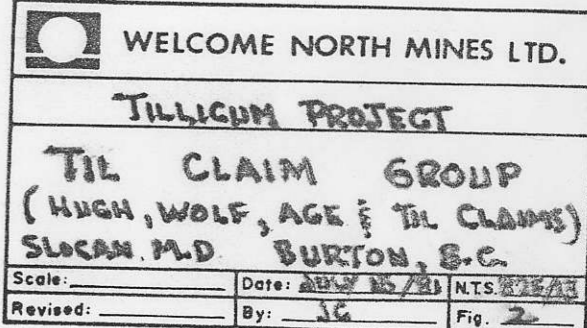 WELCOME NORTH MINES LTD.
TILLICUM PROJECT
TIL CLAIM GROUP
(HUGH, WOLF, AGE & TIL CLAIMS)
SLOCAN M.D. BURTON, B.C.
Scale: Date: /81 N.T.S.
Revised: By: JG Fig. 2